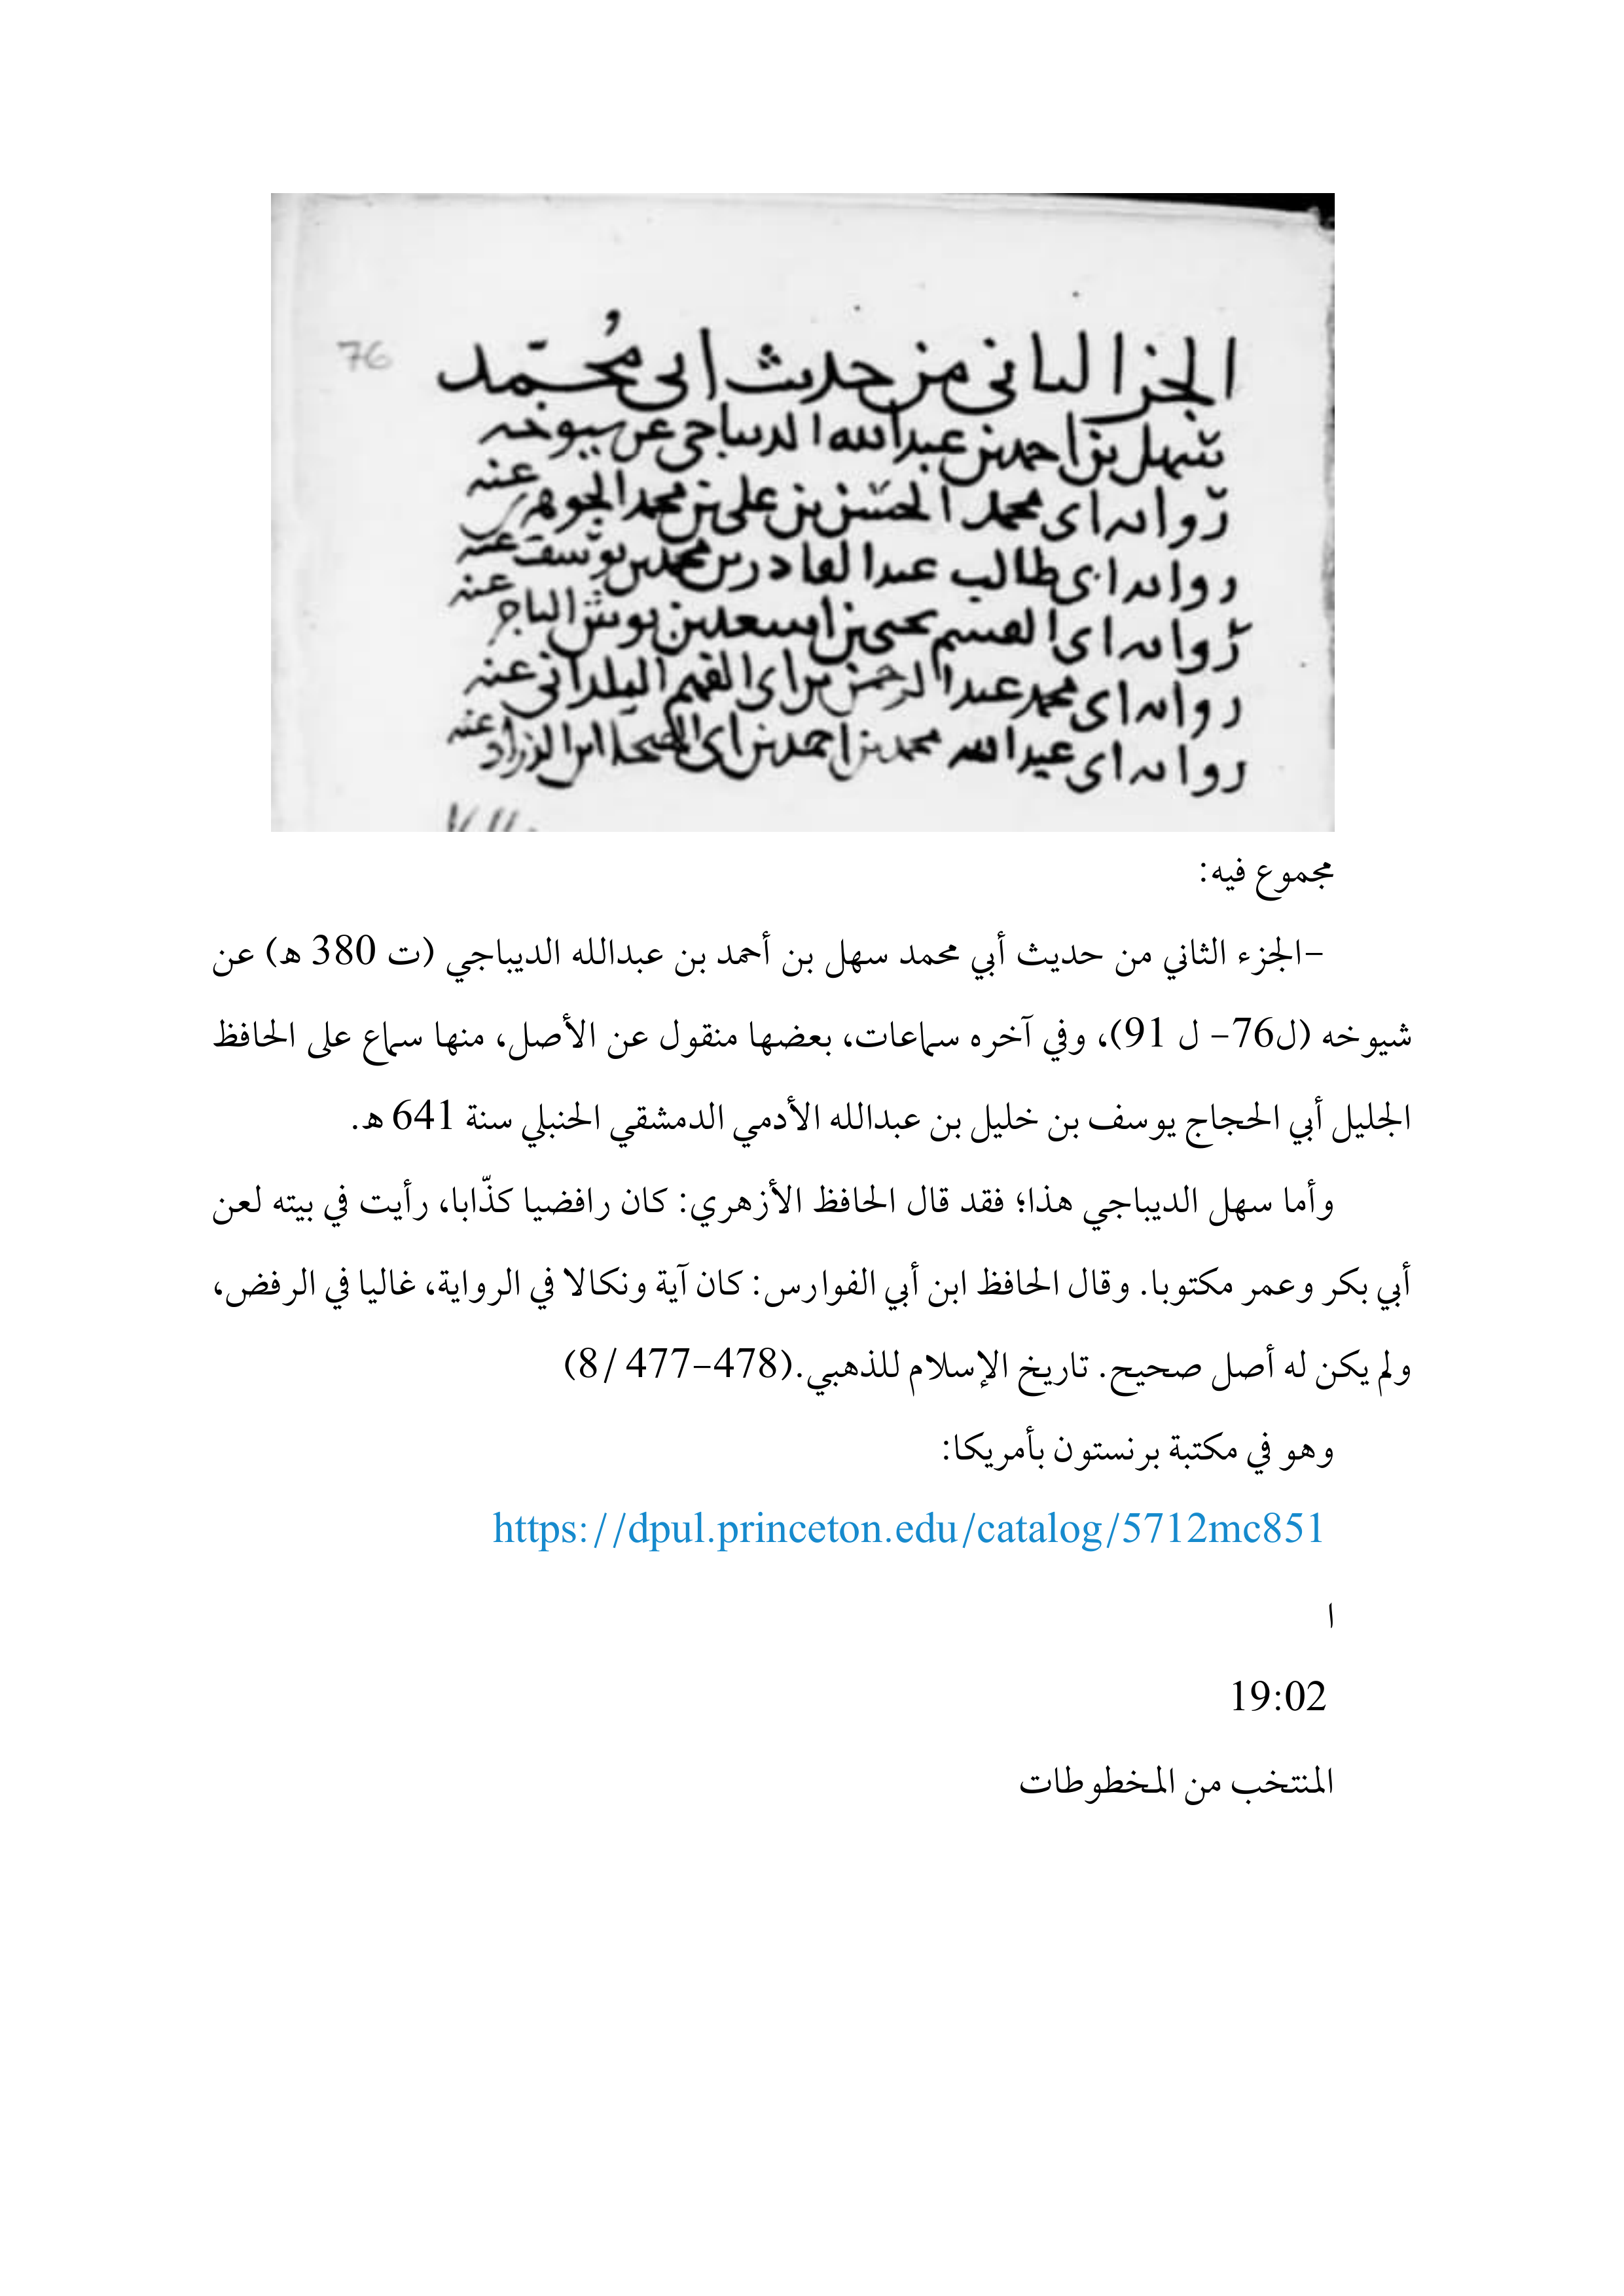 76
الجزا الثاني من حديث ابي مُحمّد
سهل بن احمد بن عبد الله الديباجي عن شيوخه
رواية ابي محمد الحسن بن علي بن محمد الجوهري عنه
رواية ابي طالب عبد القادر بن محمد بن يوسف عنه
رواية ابي القسم يحيى بن اسعد بن بوش التاجر عنه
رواية ابي محمد عبد الرحمن بن ابي الفهم اليلداني عنه
رواية ابي عبد الله محمد بن احمد بن ابي الهيجا ابن الزراد عنه
مجموع فيه:
-الجزء الثاني من حديث أبي محمد سهل بن أحمد بن عبدالله الديباجي (ت 380 ه) عن
شيوخه (ل76- ل 91)، وفي آخره سماعات، بعضها منقول عن الأصل، منها سماع على الحافظ
الجليل أبي الحجاج يوسف بن خليل بن عبدالله الأدمي الدمشقي الحنبلي سنة 641 ه.
وأما سهل الديباجي هذا؛ فقد قال الحافظ الأزهري: كان رافضيا كذّابا، رأيت في بيته لعن
أبي بكر وعمر مكتوبا. وقال الحافظ ابن أبي الفوارس: كان آية ونكالا في الرواية، غاليا في الرفض،
ولم يكن له أصل صحيح. تاريخ الإسلام للذهبي.(8/ 477-478)
وهو في مكتبة برنستون بأمريكا:
https://dpul.princeton.edu/catalog/5712mc851
ا
19:02
المنتخب من المخطوطات